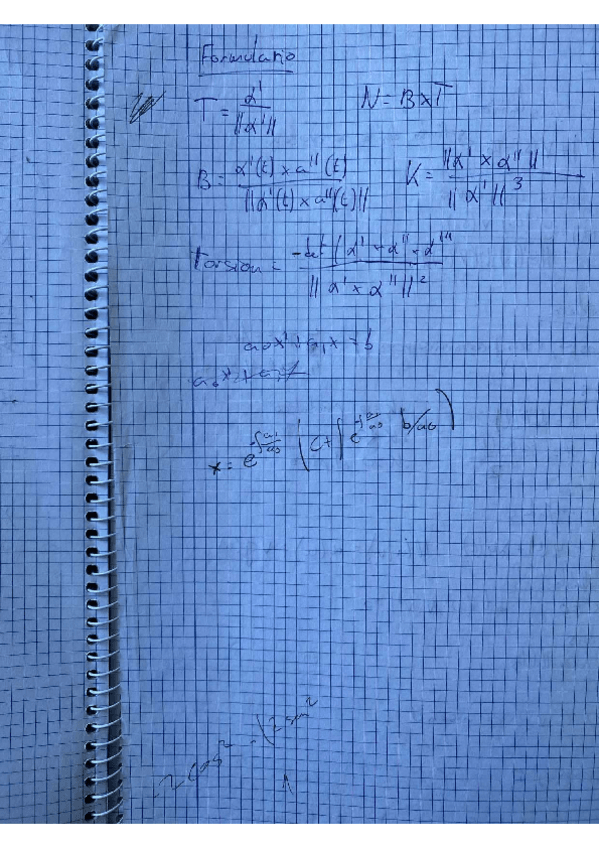 Formulario
T = α' / ||α'||    N = B x T
B = α'(t) x α''(t) / ||α'(t) x α''(t)||    K = ||α' x α''|| / ||α'||³
Torsion = -det(α' - α'' - α''' / ||α' x α''||²
a₀x' + a₁x = b
a₀x' + a₁
x = e^(-∫a₁/a₀) (C + ∫ e^(-∫a₁/a₀) b/a₀)
2 cos² - (2 sen²